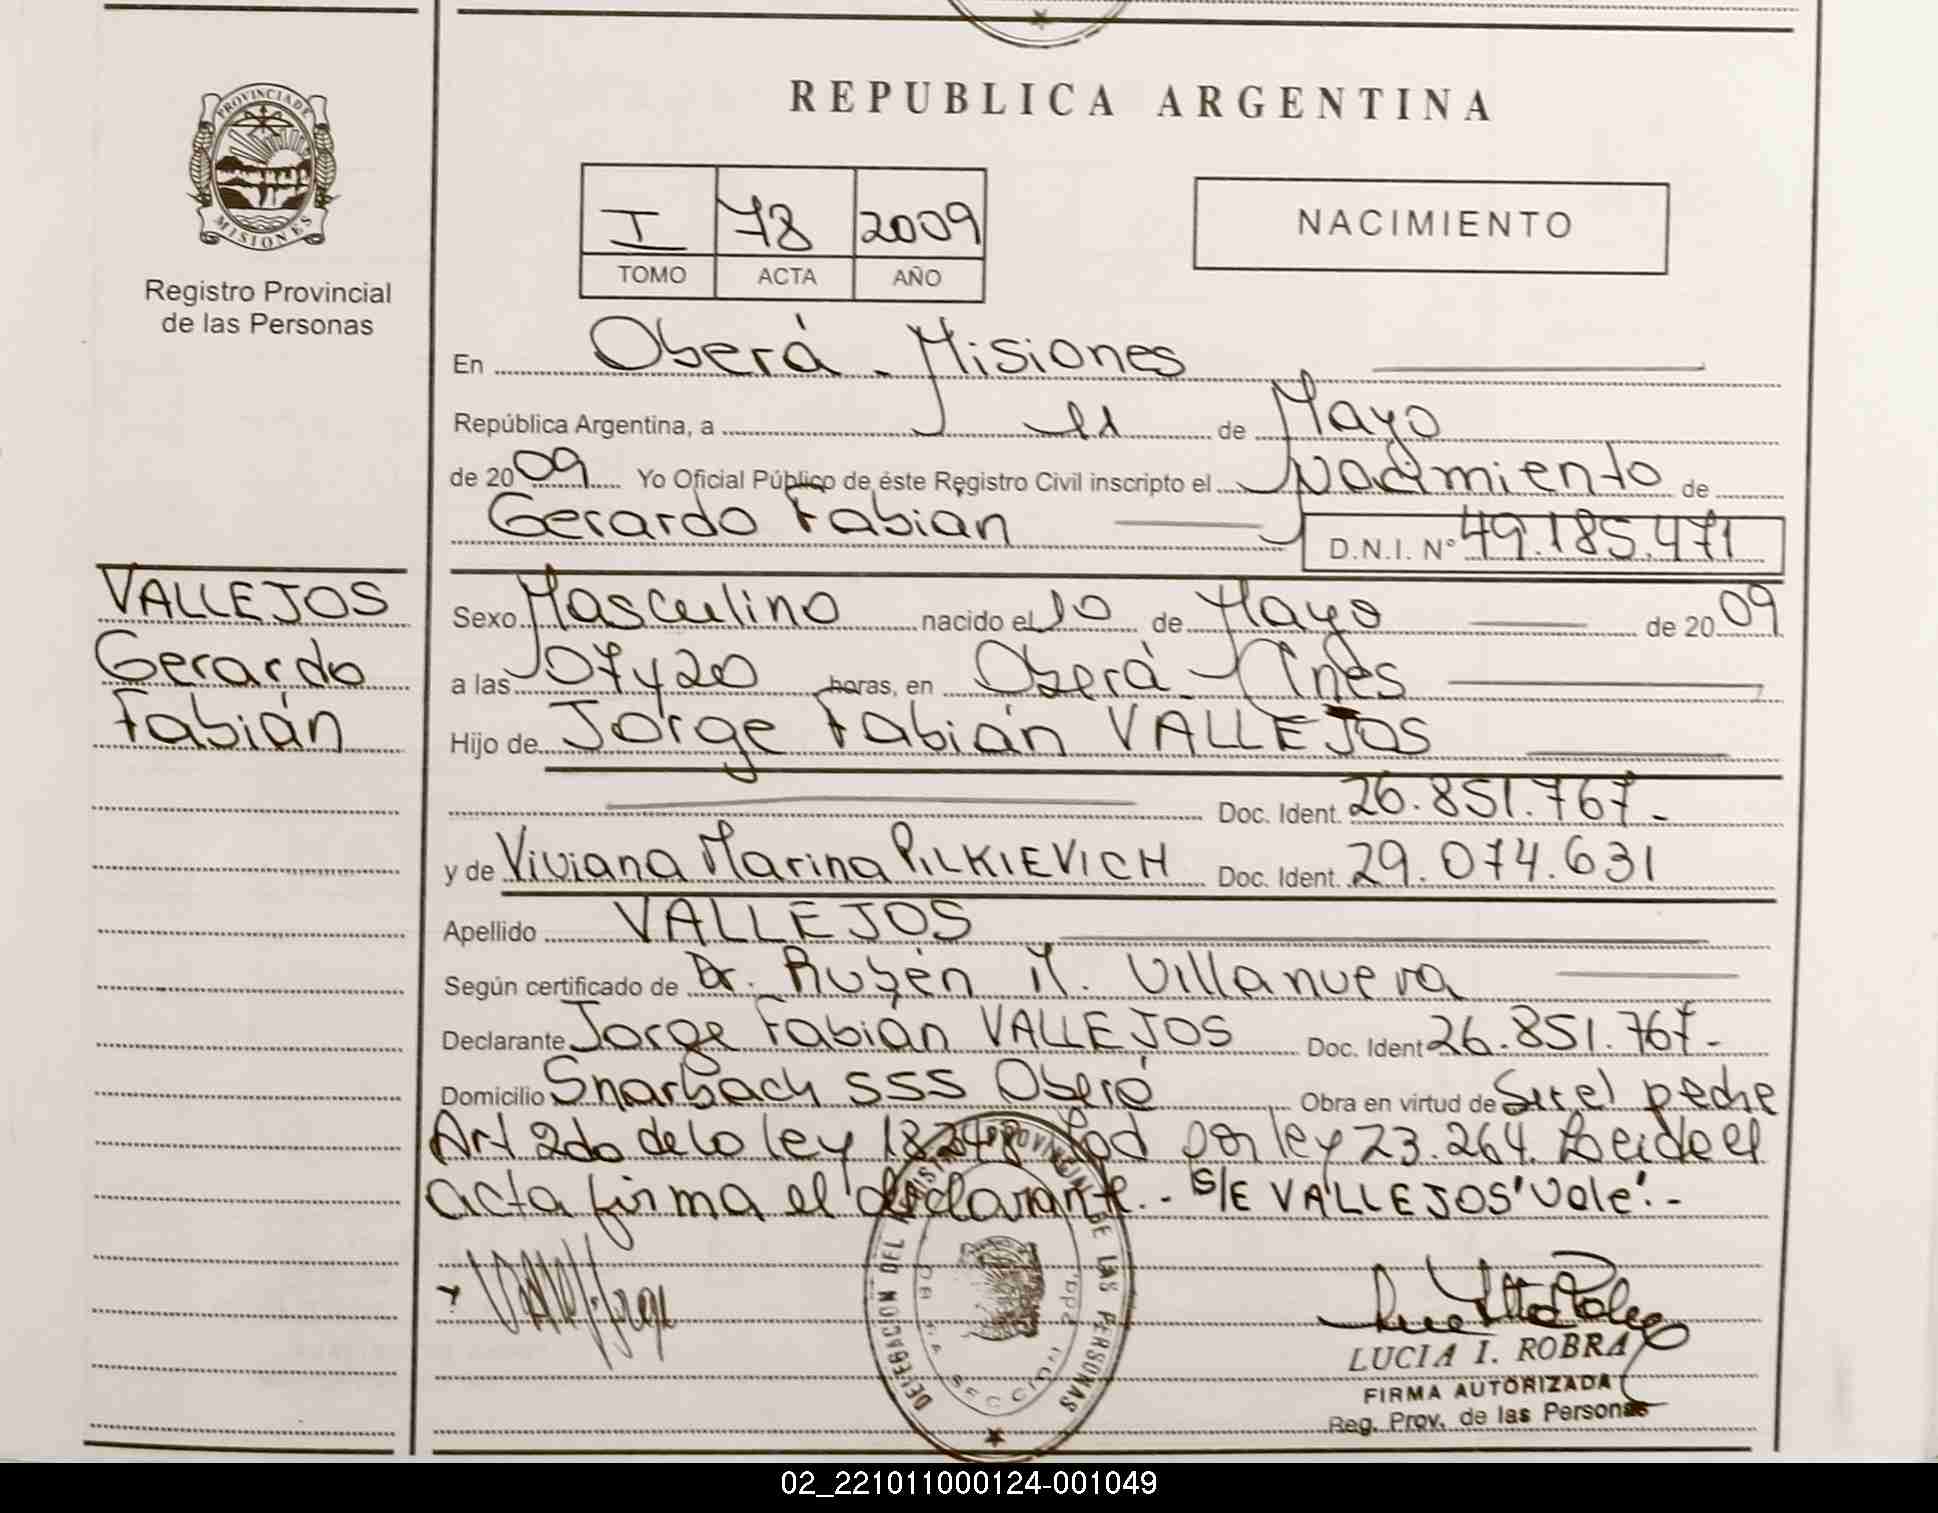 REPUBLICA ARGENTINA
PROVINCIA DE
MISIONES
Registro Provincial
de las Personas
I 78 2009
TOMO ACTA AÑO
NACIMIENTO
En Oberá - Misiones
República Argentina, a 11 de Mayo
de 2009 Yo Oficial Público de éste Registro Civil inscripto el Nacimiento de
Gerardo Fabian D.N.I. Nº 49.185.471
VALLEJOS
Gerardo
Fabián
Sexo Masculino nacido el 10 de Mayo de 2009
a las 07 y 20 horas, en Oberá - Mnes
Hijo de Jorge Fabián VALLEJOS
Doc. Ident. 26.851.767-
y de Viviana Marina PILKIEVICH Doc. Ident. 29.074.631
Apellido VALLEJOS
Según certificado de Dr. Rubén M. Villanueva
Declarante Jorge Fabián VALLEJOS Doc. Ident 26.851.767-
Domicilio 555 Oberá Obra en virtud de Ser el padre
Art 2do de la ley 18248 por ley 23.264. Leida el
acta firma el declarante.- S/E VALLEJOS "Vale".-
DELEGACION DEL REGISTRO PROVINCIAL DE LAS PERSONAS
OBERA SECCION
LUCIA I. ROBRA
FIRMA AUTORIZADA
Reg. Prov. de las Personas
02_221011000124-001049